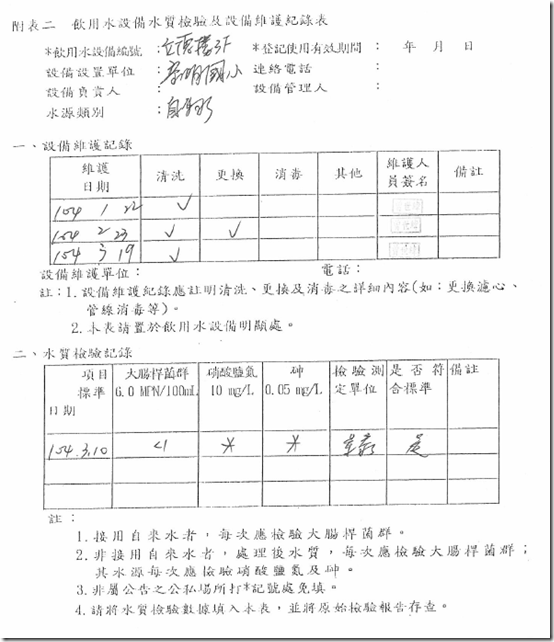 附表二 飲用水設備水質檢驗及設備維護紀錄表
*飲用水設備編號：樓3F *登記使用有效期間： 年 月 日
設備設置單位：崇明國小 連絡電話：
設備負責人： 設備管理人：
水源類別：自來水
一、設備維護記錄
維護日期 清洗 更換 消毒 其他 維護人員簽名 備註
104 1 22 ✓
104 2 23 ✓ ✓
104 3 19 ✓
設備維護單位： 電話：
註：1.設備維護紀錄應註明清洗、更換及消毒之詳細內容(如：更換濾心、
管線消毒等)。
2.本表請置於飲用水設備明顯處。
二、水質檢驗記錄
項目 大腸桿菌群 硝酸鹽氮 砷 檢驗測 是否符 備註
標準 6.0 MPN/100mL 10 mg/L 0.05 mg/L 定單位 合標準
日期
104.3.10 <1 * * 是
註：
1.接用自來水者，每次應檢驗大腸桿菌群。
2.非接用自來水者，處理後水質，每次應檢驗大腸桿菌群；
其水源每次應檢驗硝酸鹽氮及砷。
3.非屬公告之公私場所打*記號處免填。
4.請將水質檢驗數據填入本表，並將原始檢驗報告存查。